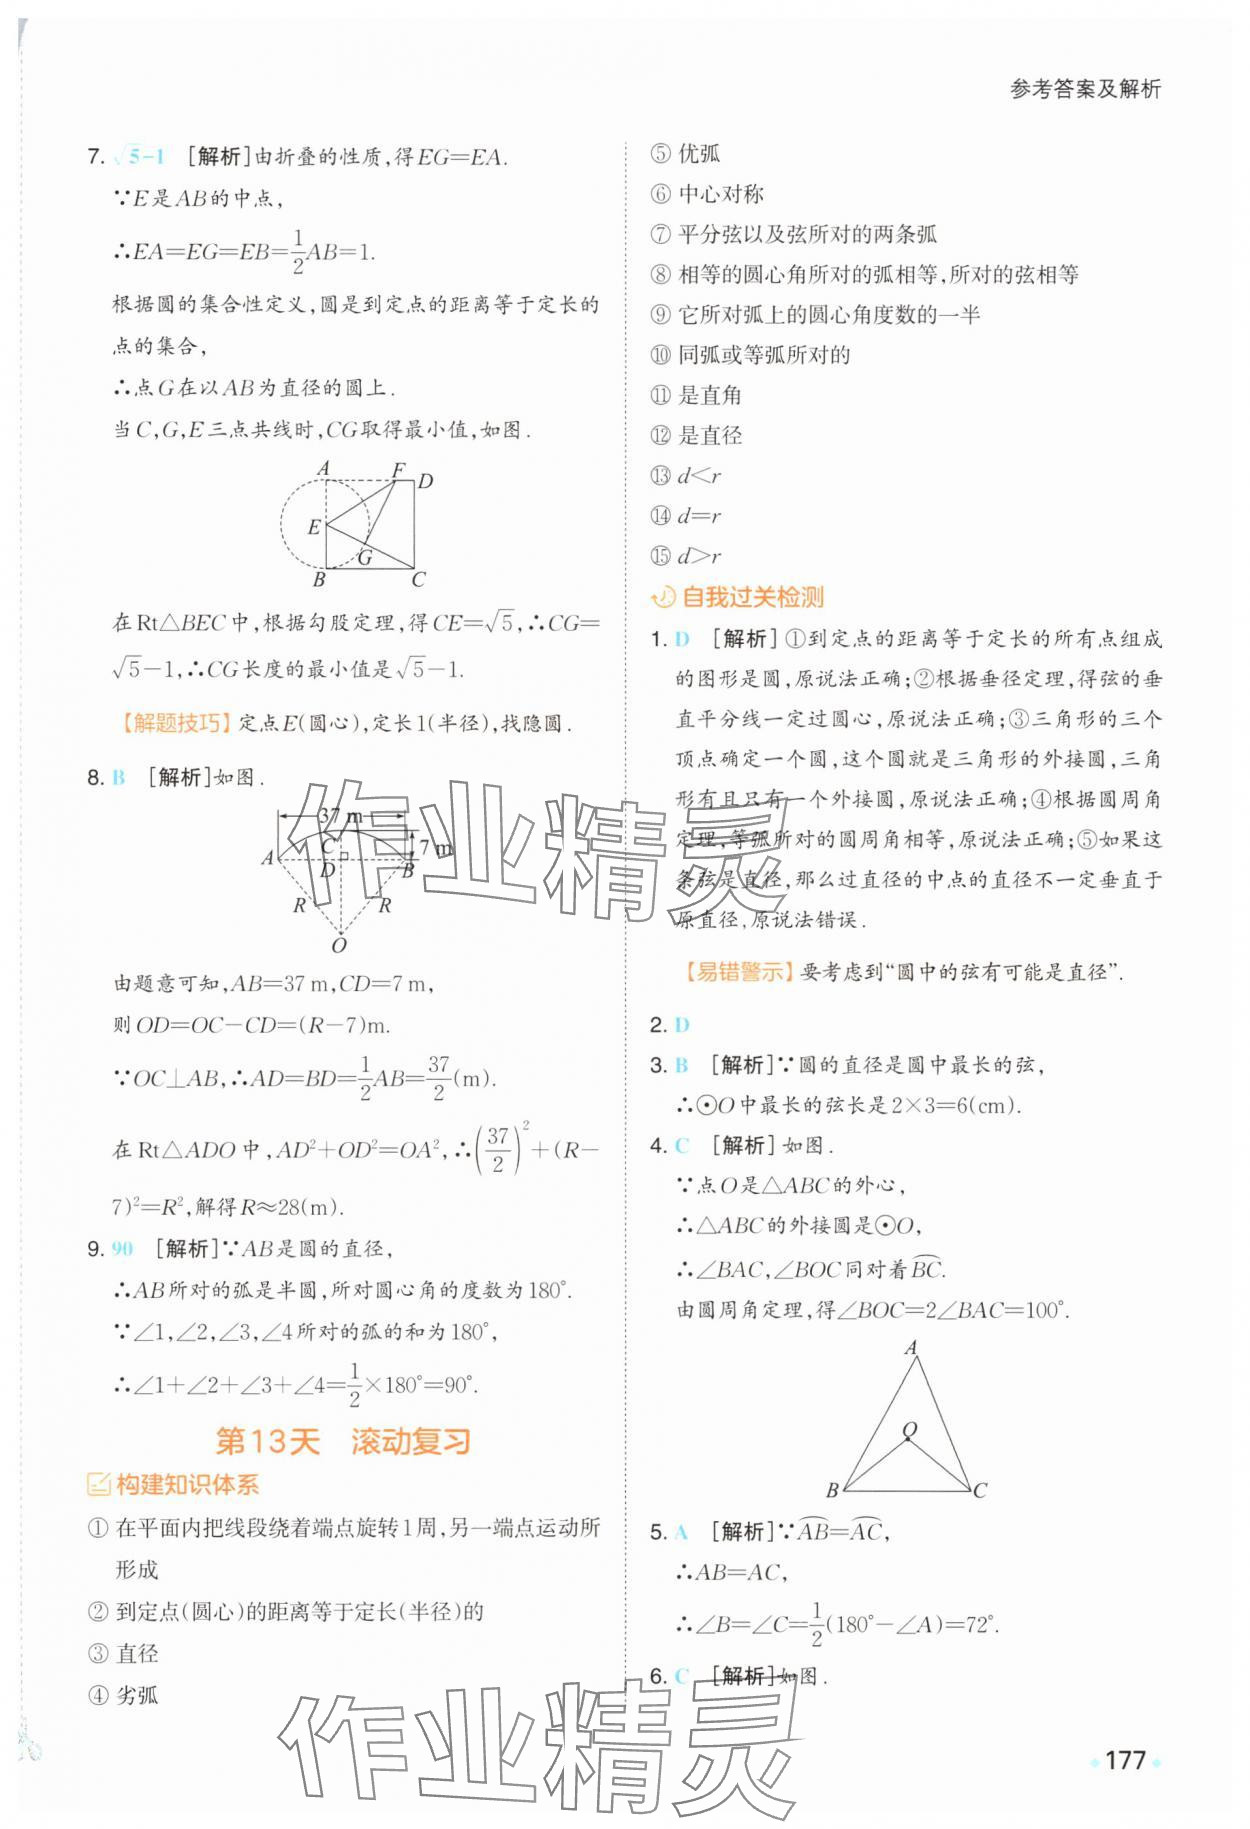 参考答案及解析
7. √5-1 [解析]由折叠的性质,得EG=EA.
∵E是AB的中点,
∴EA=EG=EB=1/2AB=1.
根据圆的集合性定义,圆是到定点的距离等于定长的
点的集合,
∴点G在以AB为直径的圆上.
当C,G,E三点共线时,CG取得最小值,如图.
A F D
E
G
B C
在Rt△BEC中,根据勾股定理,得CE=√5,∴CG=
√5-1,∴CG长度的最小值是√5-1.
【解题技巧】定点E(圆心),定长1(半径),找隐圆.
8. B [解析]如图.
37 m
C 7 m
A D B
R R
O
由题意可知,AB=37 m,CD=7 m,
则OD=OC-CD=(R-7)m.
∵OC⊥AB,∴AD=BD=1/2AB=37/2(m).
在Rt△ADO中,AD²+OD²=OA²,∴(37/2)²+(R-
7)²=R²,解得R≈28(m).
9. 90 [解析]∵AB是圆的直径,
∴AB所对的弧是半圆,所对圆心角的度数为180°.
∵∠1,∠2,∠3,∠4所对的弧的和为180°,
∴∠1+∠2+∠3+∠4=1/2×180°=90°.
第13天 滚动复习
构建知识体系
① 在平面内把线段绕着端点旋转1周,另一端点运动所
形成
② 到定点(圆心)的距离等于定长(半径)的
③ 直径
④ 劣弧
⑤ 优弧
⑥ 中心对称
⑦ 平分弦以及弦所对的两条弧
⑧ 相等的圆心角所对的弧相等,所对的弦相等
⑨ 它所对弧上的圆心角度数的一半
⑩ 同弧或等弧所对的
⑪ 是直角
⑫ 是直径
⑬ d<r
⑭ d=r
⑮ d>r
自我过关检测
1. D [解析]①到定点的距离等于定长的所有点组成
的图形是圆,原说法正确;②根据垂径定理,得弦的垂
直平分线一定过圆心,原说法正确;③三角形的三个
顶点确定一个圆,这个圆就是三角形的外接圆,三角
形有且只有一个外接圆,原说法正确;④根据圆周角
定理,等弧所对的圆周角相等,原说法正确;⑤如果这
条弦是直径,那么过直径的中点的直径不一定垂直于
原直径,原说法错误.
【易错警示】要考虑到“圆中的弦有可能是直径”.
2. D
3. B [解析]∵圆的直径是圆中最长的弦,
∴⊙O中最长的弦长是2×3=6(cm).
4. C [解析]如图.
∵点O是△ABC的外心,
∴△ABC的外接圆是⊙O,
∴∠BAC,∠BOC同对着⌒BC.
由圆周角定理,得∠BOC=2∠BAC=100°.
A
O
B C
5. A [解析]∵⌒AB=⌒AC,
∴AB=AC,
∴∠B=∠C=1/2(180°-∠A)=72°.
6. C [解析]如图.
177
作业精灵
作业精灵